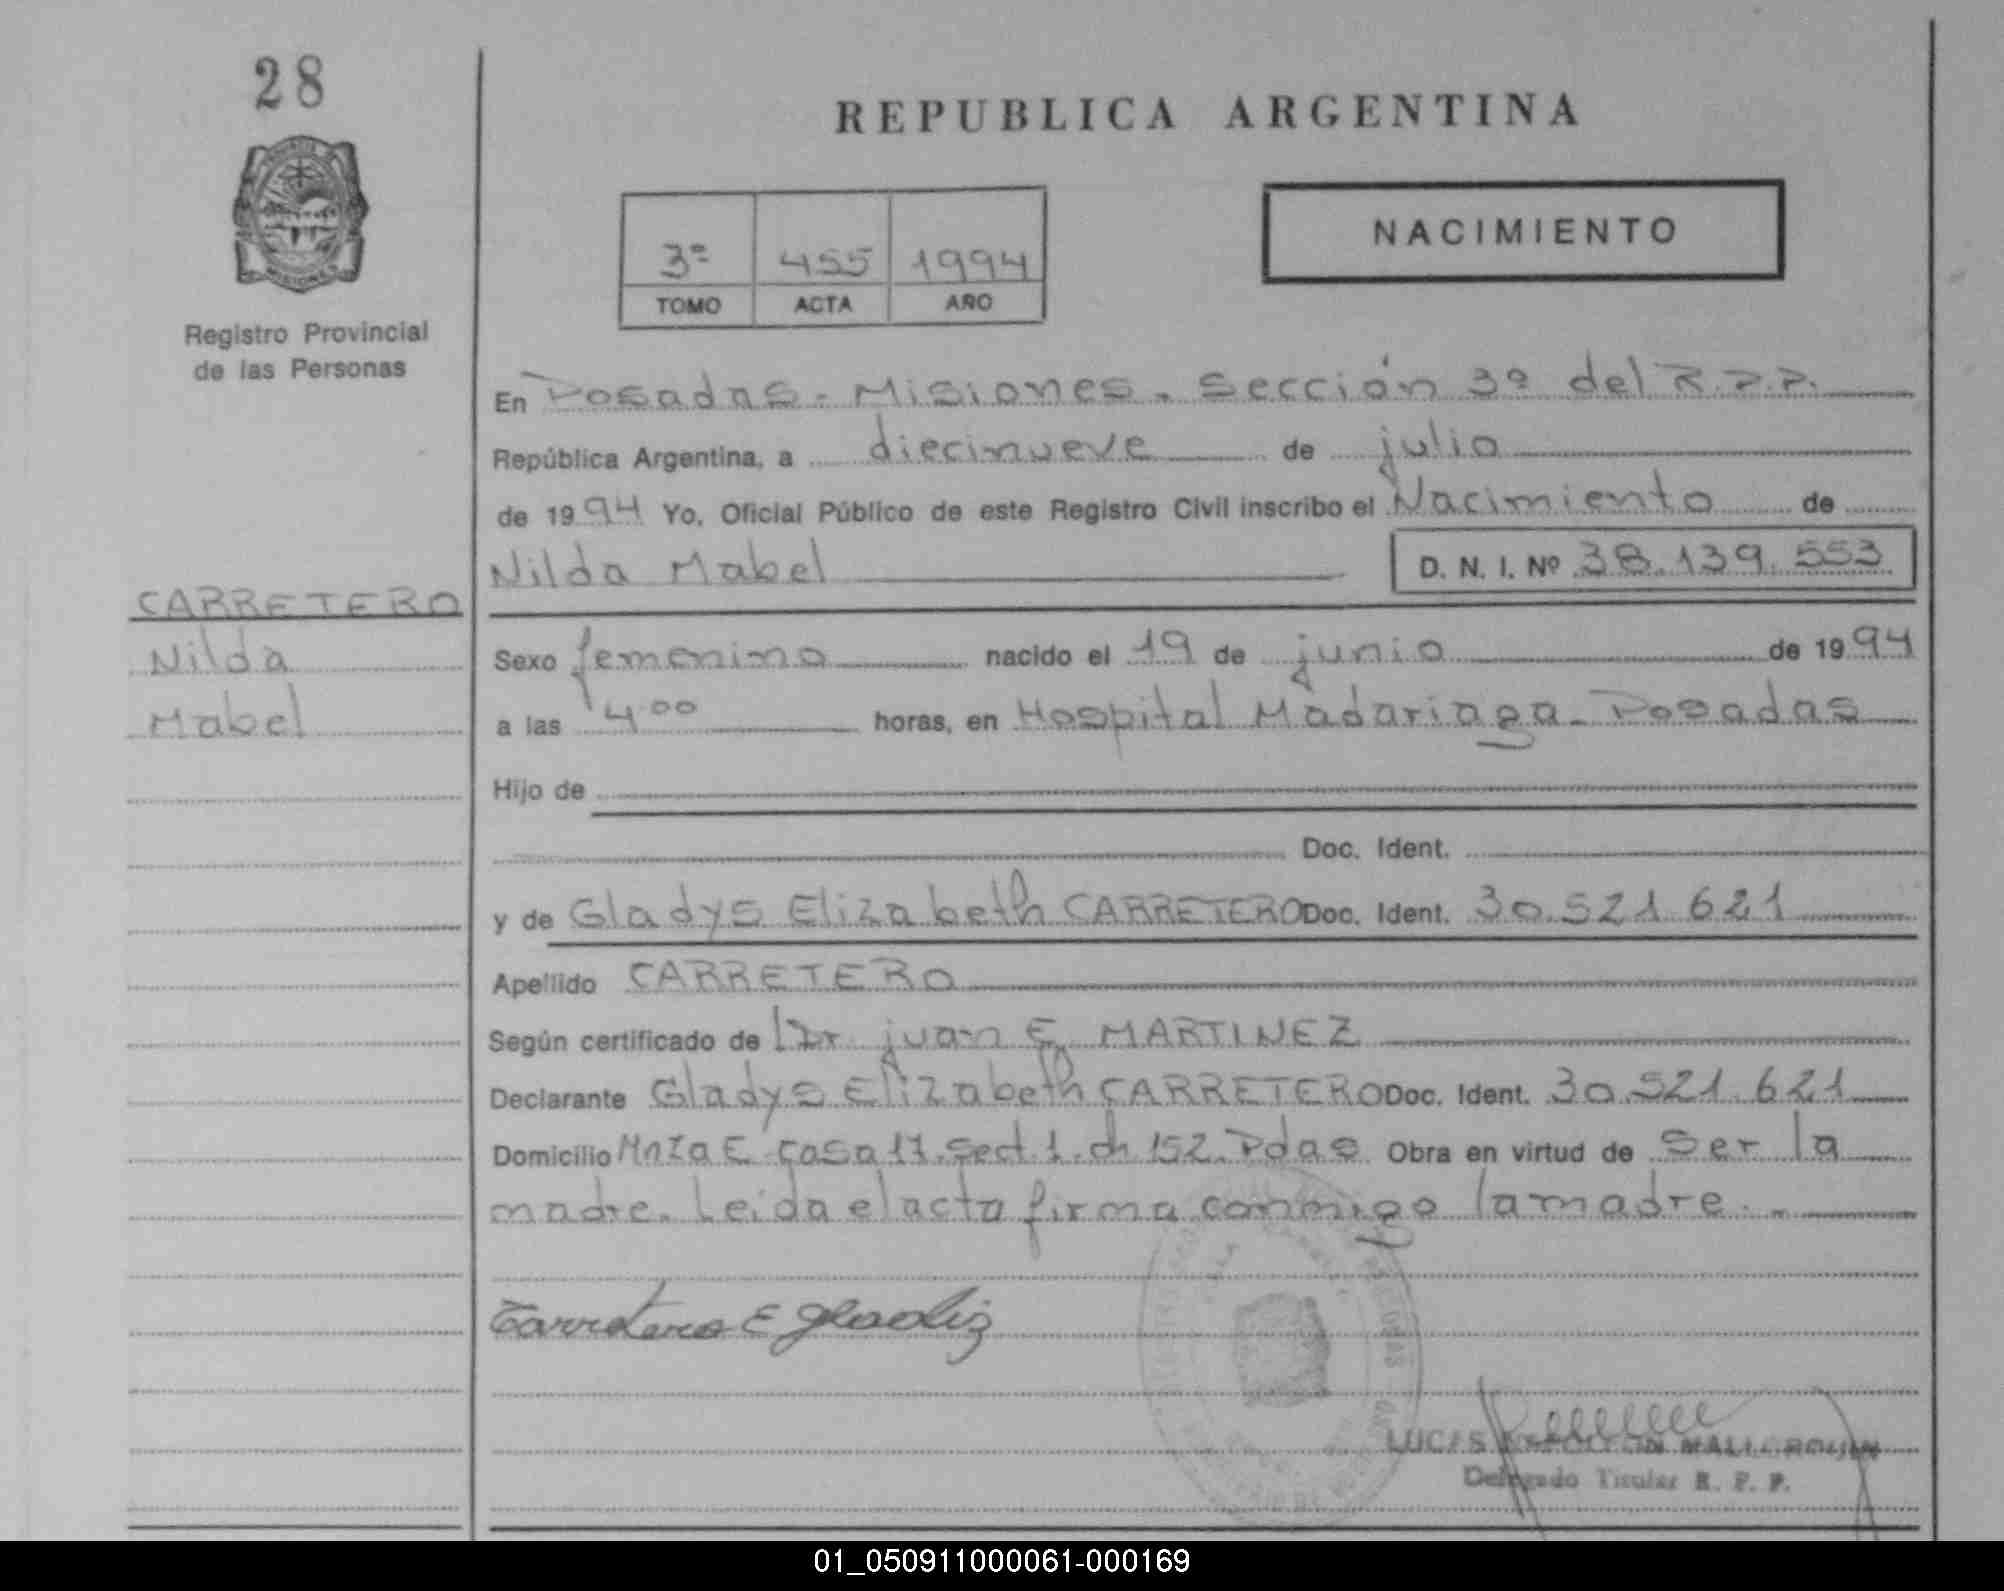 28
REPUBLICA ARGENTINA
PROVINCIA DE
MISIONES
Registro Provincial
de las Personas
3º 455 1994
TOMO ACTA AÑO
NACIMIENTO
En Posadas - Misiones. Sección 3º del R.P.P.
República Argentina, a diecinueve de julio
de 1994 Yo, Oficial Público de este Registro Civil inscribo el Nacimiento de
Nilda Mabel D. N. I. Nº 38.139.553
CARRETERO
Nilda
Mabel
Sexo femenino nacido el 19 de junio de 1994
a las 4:00 horas, en Hospital Madariaga - Posadas
Hijo de
Doc. Ident.
y de Gladys Elizabeth CARRETERO Doc. Ident. 30.521.621
Apellido CARRETERO
Según certificado de Dr. Juan E. MARTINEZ
Declarante Gladys Elizabeth CARRETERO Doc. Ident. 30.521.621
Domicilio MnZa E casa 17. Sect. 1. ch 152. Pdas Obra en virtud de Ser la
madre. Leida el acta firma conmigo la madre.-
Carretero E Gladiz
LUCAS
Delegado Titular R. P. P.
01_050911000061-000169